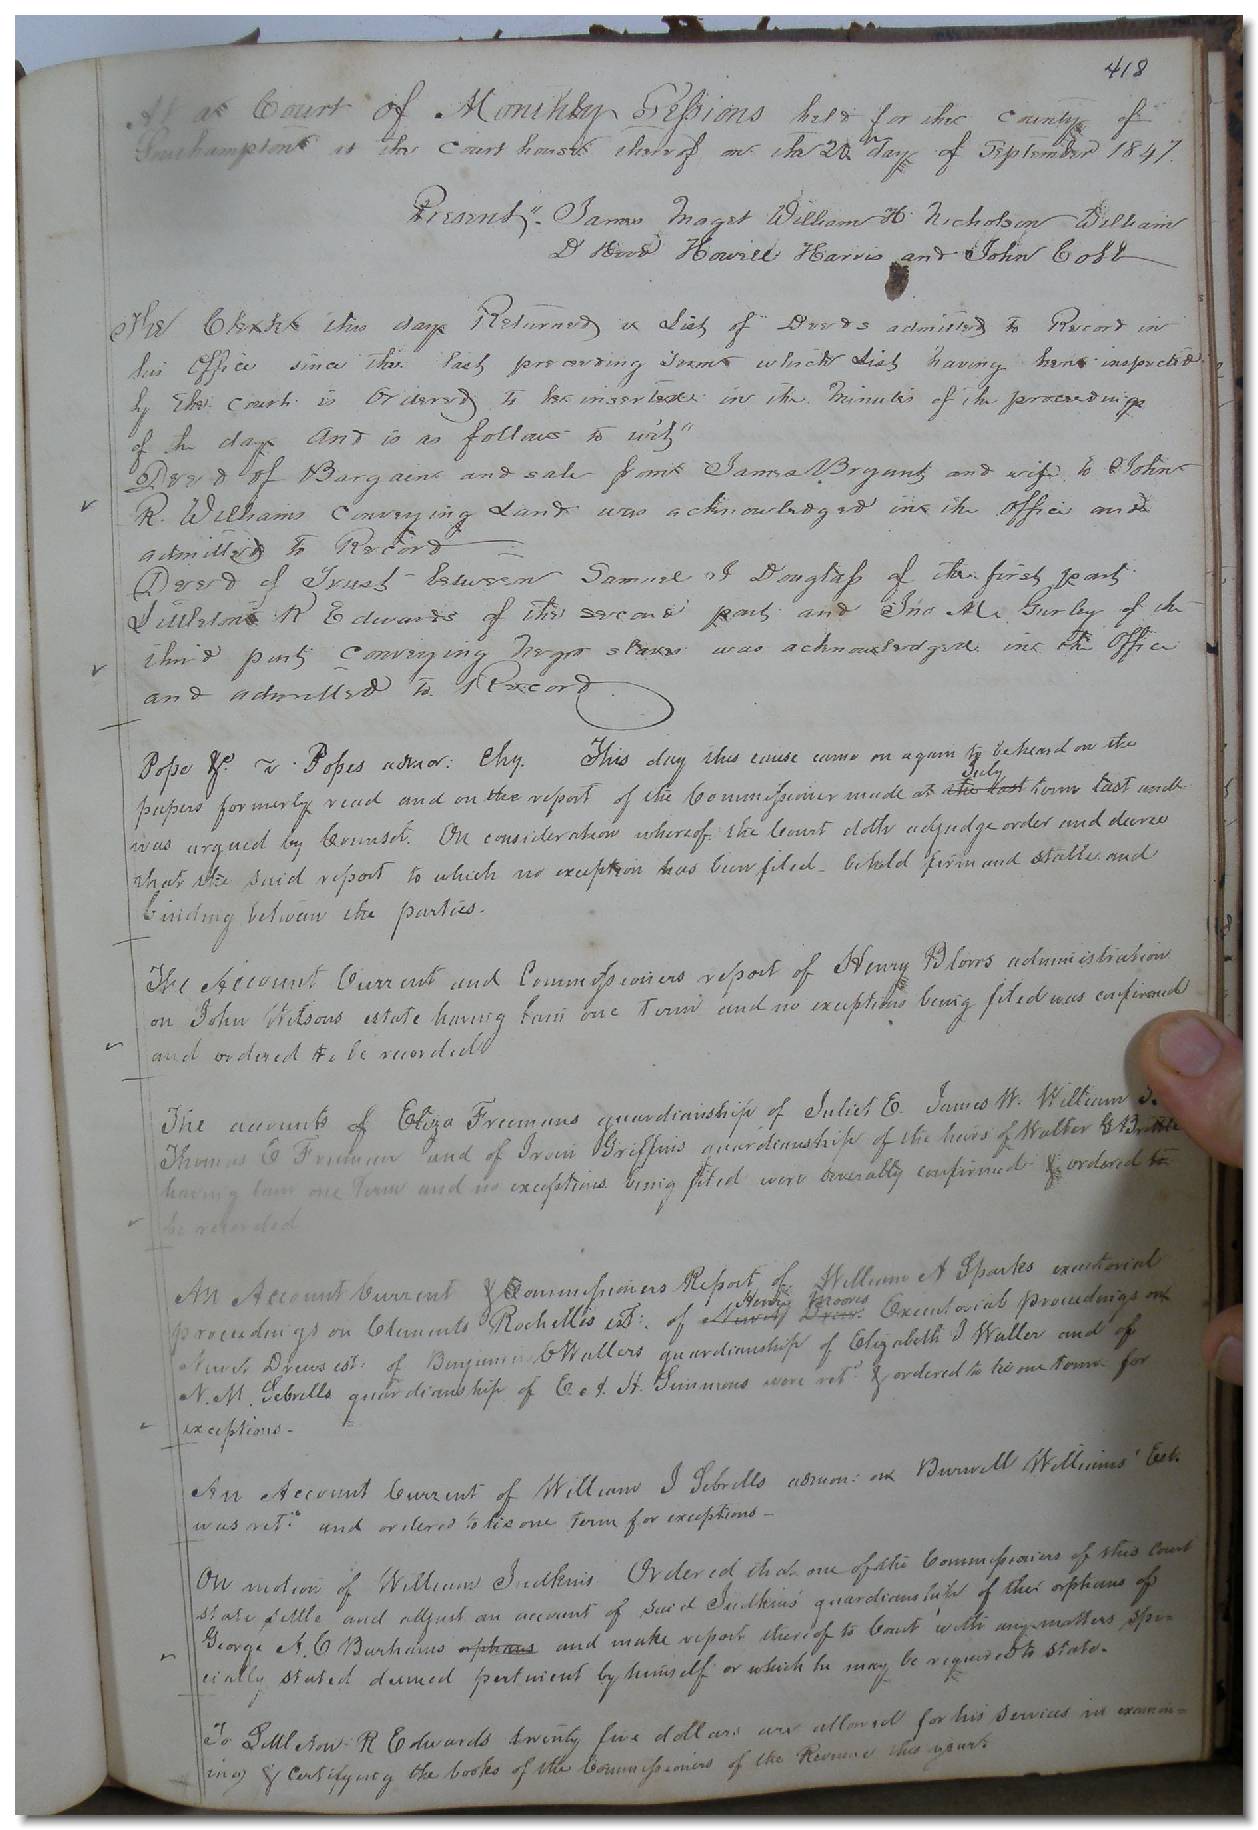 418
At a Court of Monthly Sessions held for the County of
Southampton at the Court house thereof on the 20th day of September 1847.
Present". James Maget William H. Nicholson William
D Hood Howell Harris and John Cobb
The Clerk this day Returned a List of Deeds admitted to Record in
his Office since the last preceeding Term which List having been inspected
by the Court is Ordered to be inserted in the Minutes of the proceedings
of the day And is as follows to wit"
Deed of Bargain and sale from James Bryant and wife to John
R. Williams Conveying Land was acknowledged in the Office and
admitted to Record
Deed of Trust between Samuel J Douglass of the first part
Littleton R Edwards of the second part and Jno M. Gurley of the
third part Conveying Negro slaves was acknowledged in the Office
and admitted to Record
Pope &c. v Popes admor: Chy. This day this cause came on again to be heard on the
papers formerly read and on the report of the Commissioner made at the last July term last and
was argued by Counsel. On consideration whereof the Court doth adjudge order and decree
that the said report to which no exception has been filed be held firm and stable and
binding between the parties.
The Account Current and Commissioners report of Henry Blows administration
on John Wilsons estate having lain one Term and no exceptions being filed was confirmed
and ordered to be recorded
The accounts of Eliza Freemans guardianship of Juliet E. James W. William
Thomas E Freeman and of Irvin Griffins guardianship of the heirs of Walter Brittle
having lain one Term and no exceptions being filed were severally confirmed & ordered to
be recorded
An Account Current & Commissioners Report of William A Sparks executorial
proceedings on Clements Rochelles est: of Henry Moores Executorial proceedings on
Newit Drews est: of Benjamin C Wallers guardianship of Elizabeth J Waller and of
N. M. Sebrells guardianship of E. & H. Simmons were retd & ordered to lie one term for
exceptions -
An Account Current of William J Sebrells admon: on Burwell Williams' Est.
was retd and ordered to lie one term for exceptions -
On motion of William Judkins Ordered that one of the Commissioners of this Court
state settle and adjust an account of said Judkins' guardianship of the orphans of
George A. C Barhams orphans and make report thereof to Court with any matters spe-
cially stated deemed pertinent by himself or which he may be required to state.
To Littleton R Edwards twenty five dollars are allowed for his services in examin-
ing & certifying the books of the Commissioners of the Revenue this year.